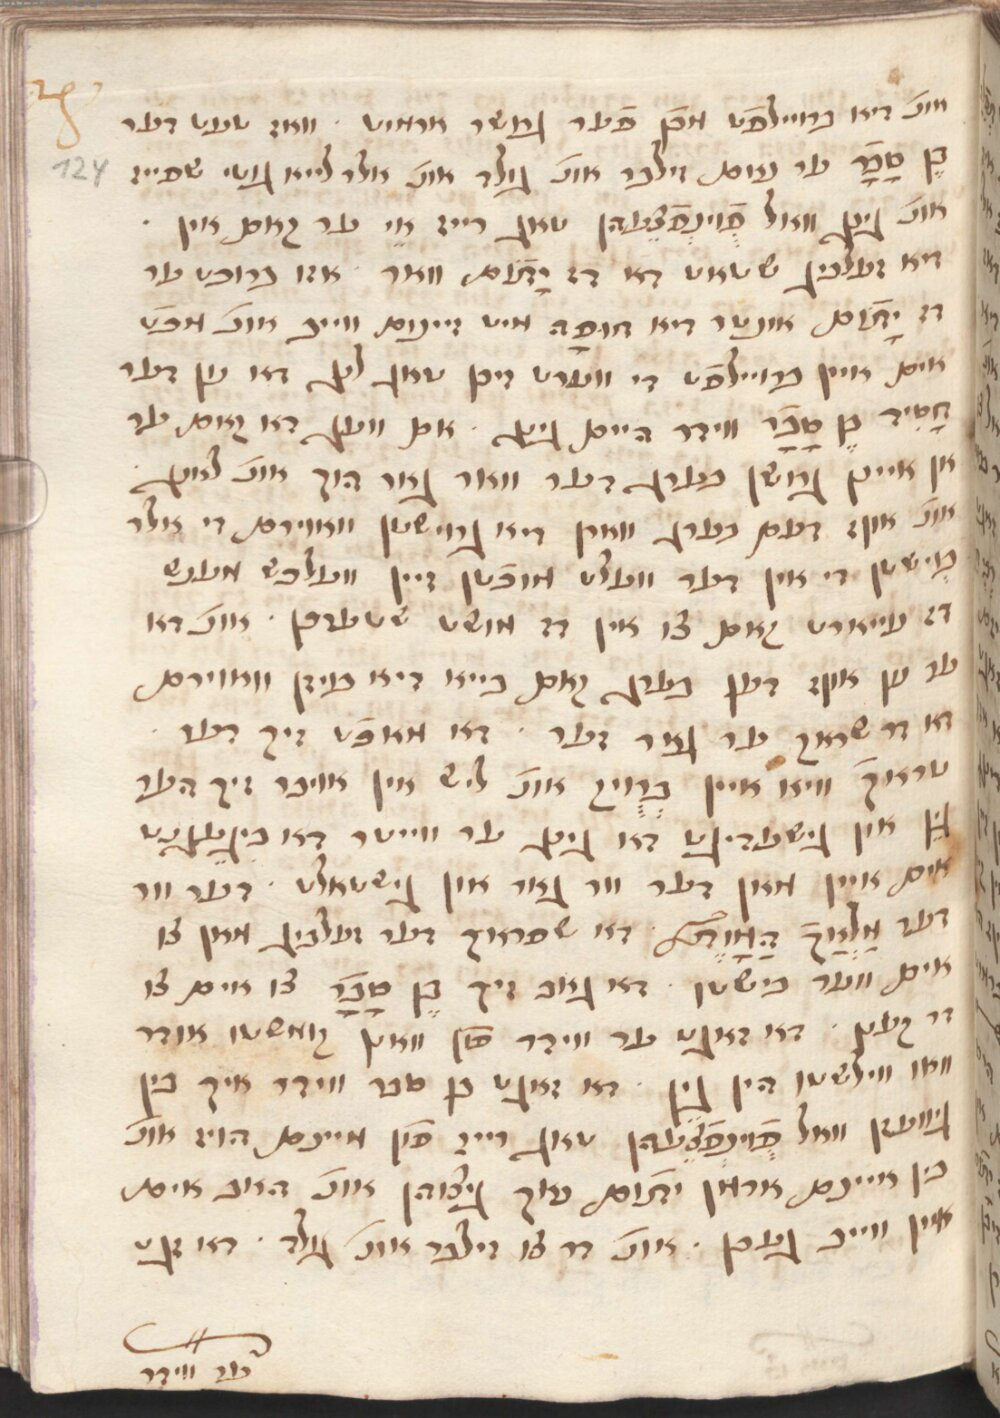 124
אונ' דיא ברויילפֿט מכֿן פֿער גרושר ארמוט · וואז טעט דער
בֶן סָבָר ער נאם זילבר אונ' גולד אונ' אלר לייא גוטי שפייז
אונ' גינג וואל פֿוינפֿצעהן טאג רייז · ער קאם אין ·
דיא זעלביג שטאט דא דז יָתוֹם וואר · אזו ברופט ער
דז יָתוֹם אונטר דיא חוּפָּה מיט זיינם ווייב אונ' מכֿט
אים איין ברויילפֿט די ווערט זיבן טאג לנג דא נון דער
חָסִיד בֶן סָבָר ווידר היים גינג · אים וועג דא קאם ער
אן איינן גרושן בערג דער וואר גאר הוך אונ' לאנג ·
אונ' אויף דעם בערג ווארן דיא גרוישטן ווארום די אלר
בוישטן די אין דער וועלט מוכֿטן זיין וועלכש מענש
דז נייארט קאם צו אין דז מושט שטערבן · אונ' דא
ער נון אויף דען בערג קאם בייא דיא ביזן ווארום
דא דר שראק ער גאר זער · דא מאכֿט זיך דער ·
טראק וויא איין ברויק אונ' ליש אין איבר זיך הער
גין אין גישטרינגט דא גינג ער ווייטר דא ביגעגנט
אים איין מאן דער וור גאר און גישטאלט · דער וור
דער מַלְאָךְ הַמָוֶת · דא שפראך דער זעלביג מאן צו
אים ווער בישטו · דא גאב זיך בֶן סָבָר צו אים צו
דר קענן · דא זאגט ער ווידר פֿון וואנן קומשטו אודר
וואו ווילשטו הין גין · דא זאגט בן סבר ווידר איך בין
גיוועזן וואל פֿוינפֿצעהן טאג רייז פֿון מיינם הויז אונ'
בין איינם ארמן יתום נוך גיצוהן אונ' האב אים
איין ווייב געבן · אונ' דר צו זילבר אונ' גולד · דא זגט
ער ווידר